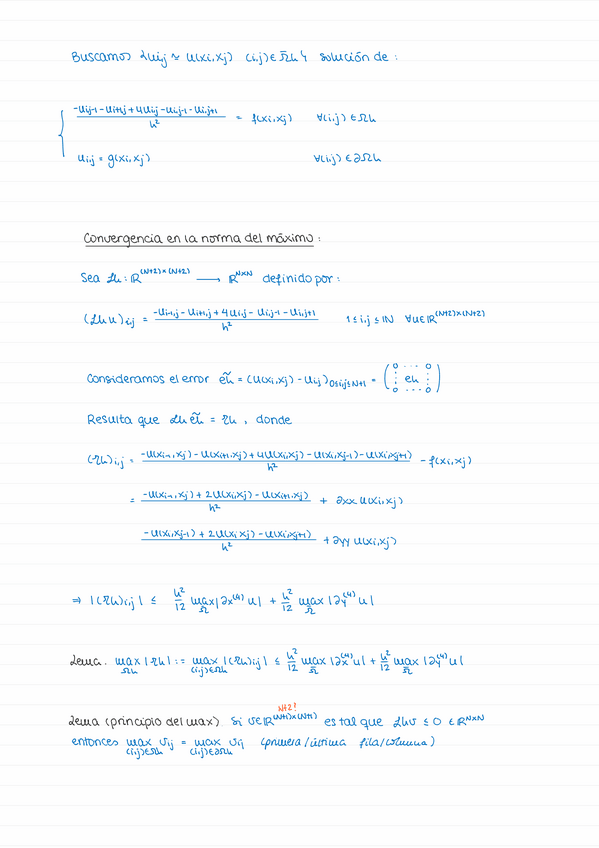 Buscamos {uij ≈ u(xi,xj) (i,j)∈Ω̄h} solución de :
{ (-ui,j-1 - ui+1,j + 4ui,j - ui,j-1 - ui,j+1)/h² = f(xi,xj) ∀(i,j)∈Ωh
ui,j = g(xi,xj) ∀(i,j)∈∂Ωh
Convergencia en la norma del máximo :
Sea Lh : ℝ^(N+2)×(N+2) ⟶ ℝ^N×N definido por :
(Lhu)i,j = (-ui-1,j - ui+1,j + 4ui,j - ui,j-1 - ui,j+1)/h² 1≤i,j≤N ∀u∈ℝ^(N+2)×(N+2)
Consideramos el error ẽh = (u(xi,xj) - uij)0≤i,j≤N+1 = (0 ... 0 ⋮ eh ⋮ 0 ... 0)
Resulta que Lhẽh = τh , donde
(τh)i,j = (-u(xi-1,xj) - u(xi+1,xj) + 4u(xi,xj) - u(xi,xj-1) - u(xi,xj+1))/h² - f(xi,xj)
= (-u(xi-1,xj) + 2u(xi,xj) - u(xi+1,xj))/h² + ∂xx u(xi,xj)
(-u(xi,xj-1) + 2u(xi,xj) - u(xi,xj+1))/h² + ∂yy u(xi,xj)
⇒ |(τh)i,j| ≤ h²/12 max_Ω̄ |∂x^(4) u| + h²/12 max_Ω̄ |∂y^(4) u|
Lema. max_Ωh |τh| := max_(i,j)∈Ωh |(τh)i,j| ≤ h²/12 max_Ω̄ |∂x^(4) u| + h²/12 max_Ω̄ |∂y^(4) u|
N+2!
Lema (principio del max) Si v∈ℝ^(N+1)×(N+1) es tal que Lhv ≤ 0 ∈ℝ^N×N
entonces max_(i,j)∈Ω̄h vij = max_(i,j)∈∂Ωh vij (primera/última fila/columna)